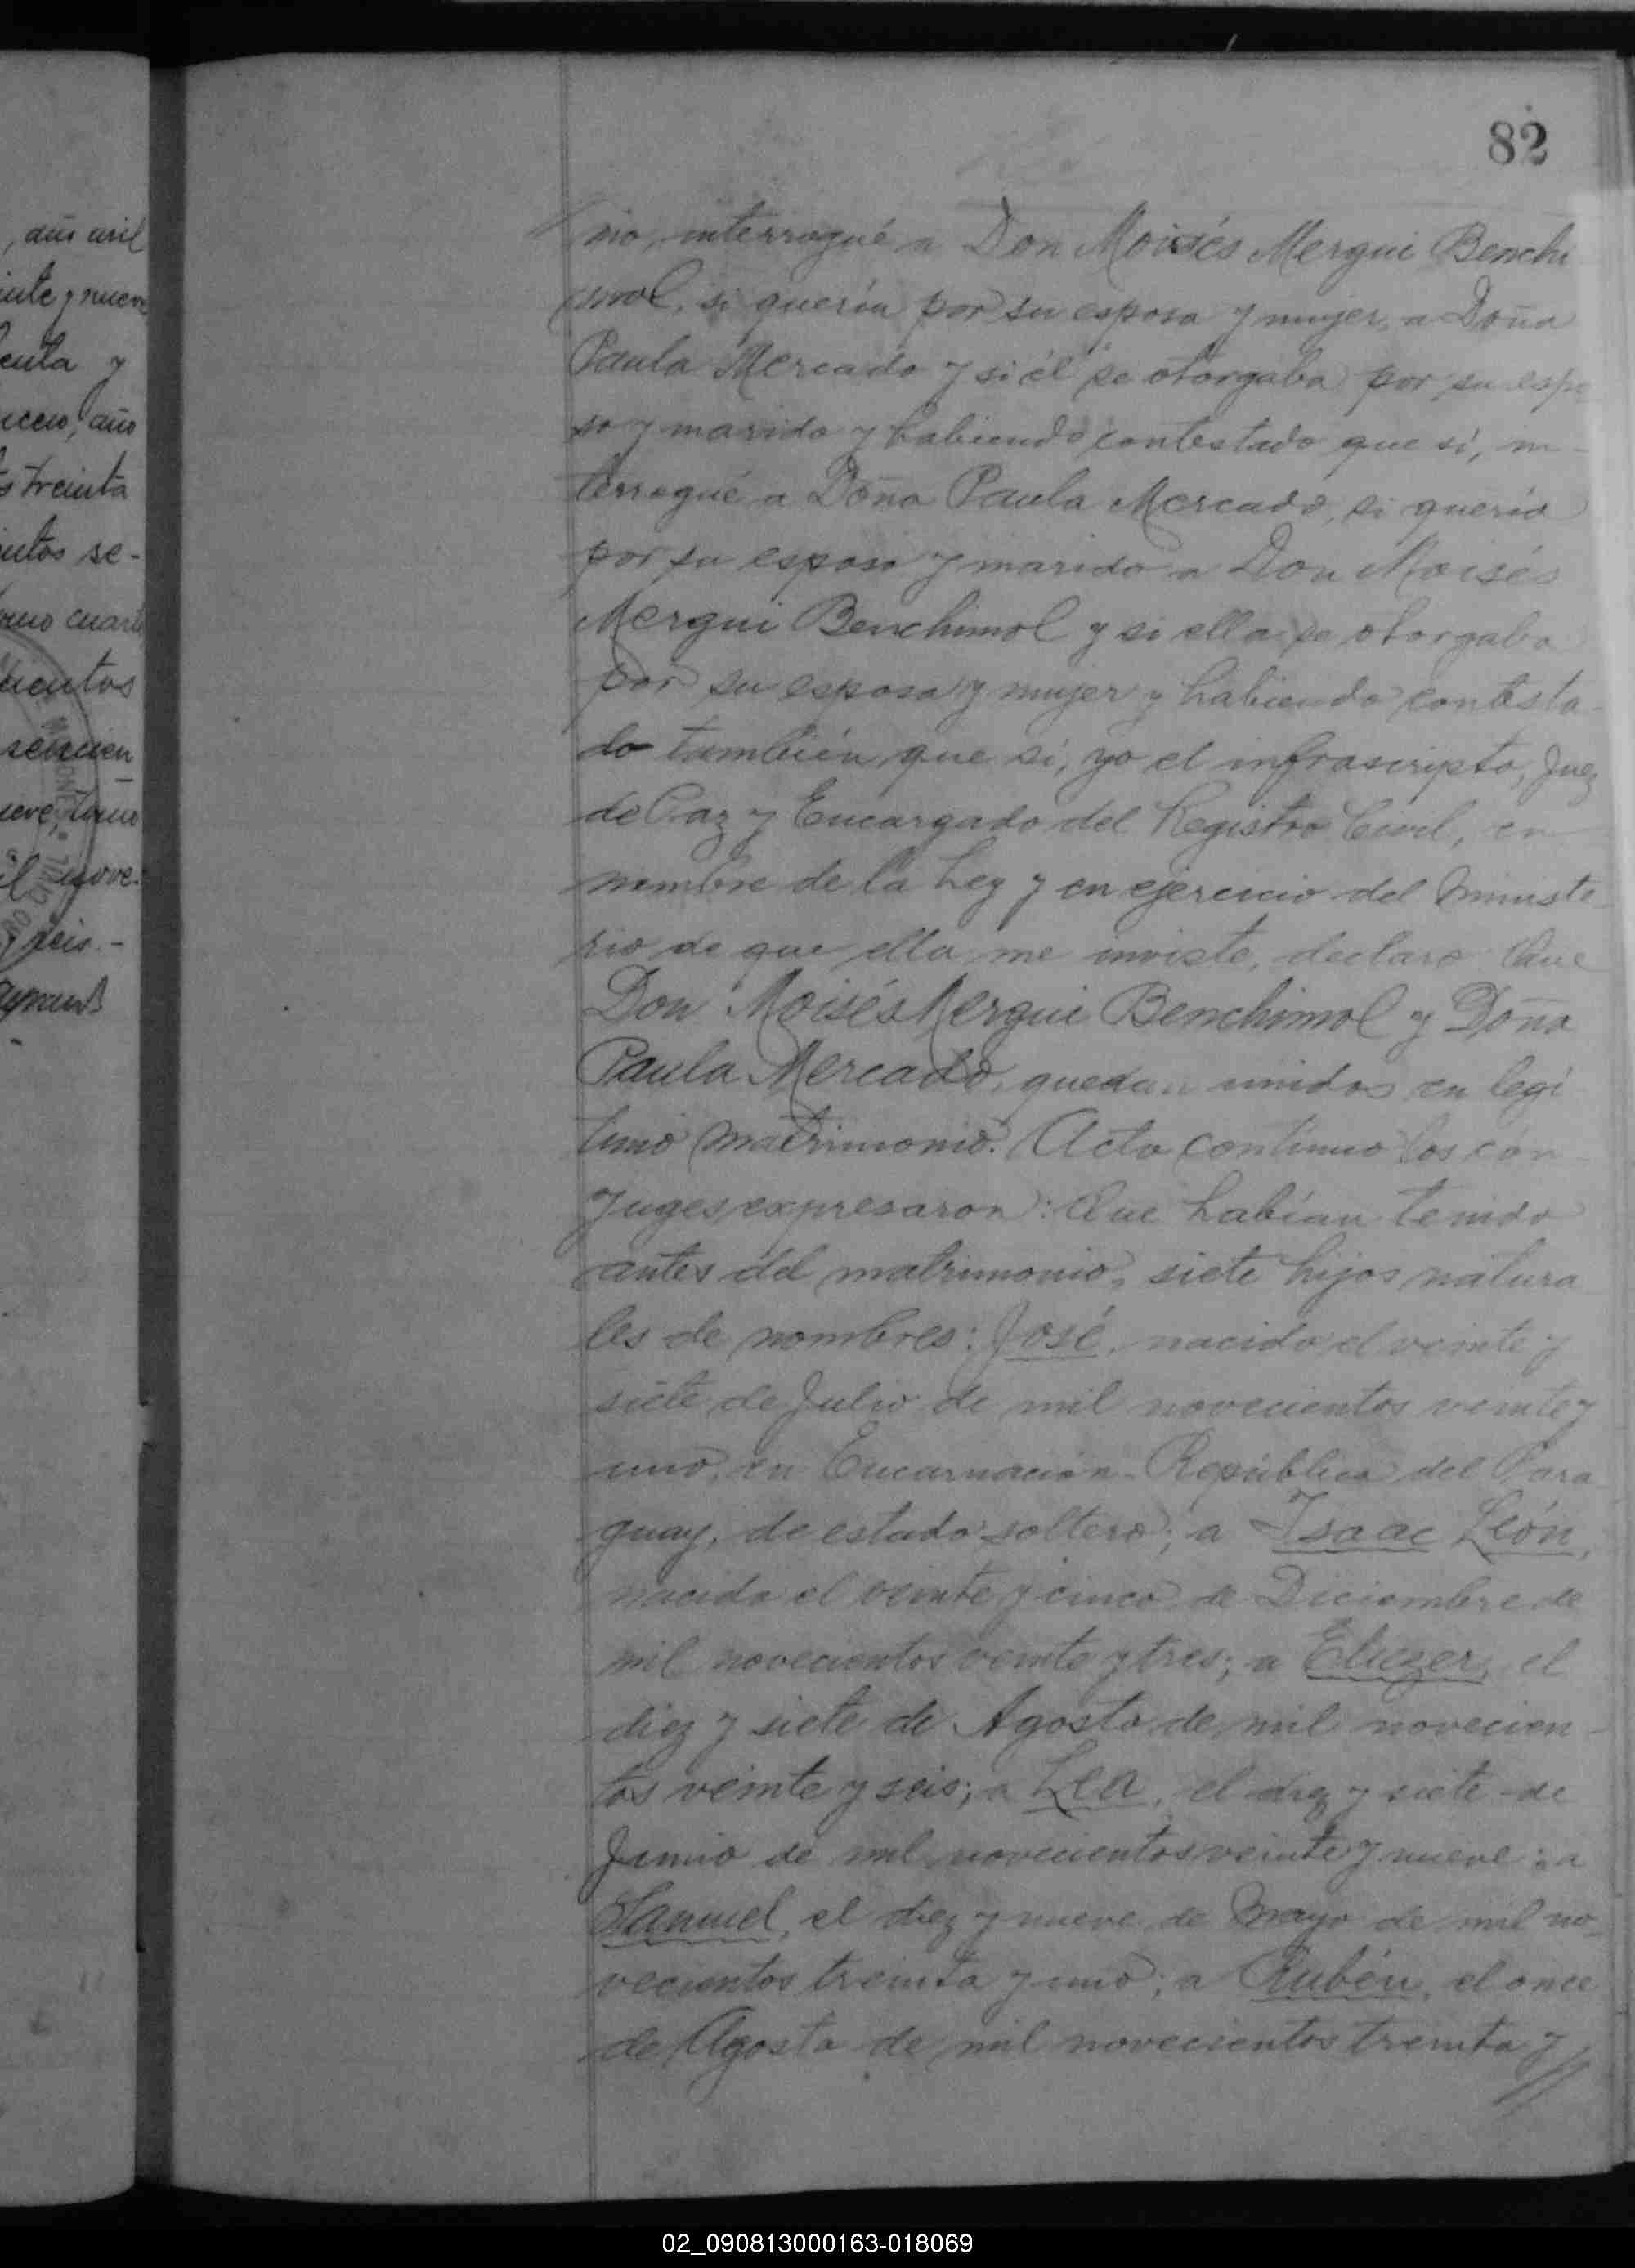 82
, año mil
inte y nueve
enta y
ucero, año
s treinta
entos se-
tomo cuarto
cientos
secuen
ueve, tomo
il nove-
y seis.-
no, interrogué a Don Moisés Mergui Benchi
mol, si quería por su esposa y mujer, a Doña
Paula Mercado y si él se otorgaba por su espo
so y marido y habiendo contestado que sí, in-
terrogué a Doña Paula Mercado, si quería
por su esposo y marido a Don Moisés
Mergui Benchimol y si ella se otorgaba
por su esposa y mujer y habiendo contesta-
do también que sí, yo el infrascripto, Juez
de Paz y Encargado del Registro Civil, en
nombre de la Ley y en ejercicio del Ministe
rio de que ella me inviste, declaro: Que
Don Moisés Mergui Benchimol y Doña
Paula Mercado, quedan unidos en legí
timo matrimonio. Acto continuo los cón
yuges expresaron: Que habían tenido
antes del matrimonio, siete hijos natura
les de nombres: José, nacido el veinte y
siete de Julio de mil novecientos veinte y
uno, en Encarnación - República del Para
guay, de estado soltero; a Isaac León,
nacido el veinte y cinco de Diciembre de
mil novecientos veinte y tres; a Eliezer, el
diez y siete de Agosto de mil novecien-
tos veinte y seis; a Lea, el diez y siete de
Junio de mil novecientos veinte y nueve; a
Samuel, el diez y nueve de Mayo de mil no-
vecientos treinta y uno; a Rubén, el once
de Agosto de mil novecientos treinta y
//
02_090813000163-018069